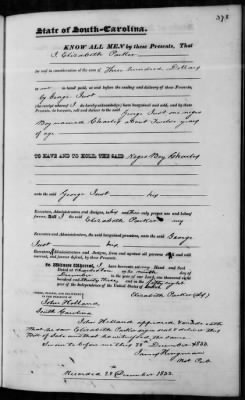 373
State of South-Carolina.
KNOW ALL MEN by these Presents, That
I Elizabeth Parker
for and in consideration of the sum of Three hundred Dollars
to me in hand paid, at and before the sealing and delivery of these Presents,
by George Just
(the receipt whereof I do hereby acknowledge) have bargained and sold, and by these
Presents, do bargain, sell and deliver to the said George Just one negro
Boy named Charles about twelve years
of age
TO HAVE AND TO HOLD, THE SAID Negro Boy Charles
unto the said George Just his
Executors, Administrators and Assigns, to his and their only proper use and behoof
for ever. And I the said Elizabeth Parker my
Executors and Administrators, the said bargained premises, unto the said George
Just his
Executors, Administrators and Assigns, from and against all persons shall and will
warrant, and forever defend, by these Presents.
In Witness Whereof, I have hereunto set my Hand and Seal
Dated at Charleston on the ninth day of
December in the year of our Lord, one thousand eight
hundred and thirty three and in the fifty eighth
year of the Independence of the United States of America
SIGNED, SEALED, AND DELIVERED
IN THE PRESENCE OF
Elizabeth Parker (LS)
John Holland
South Carolina
John Holland appeared made oath
that he saw Elizabeth Parker sign seal & deliver this
Bill of Sale and that he witnessed the same
Sworn to before me this 28th December 1833.
Not. Pub.
Recorded 28 December 1833.